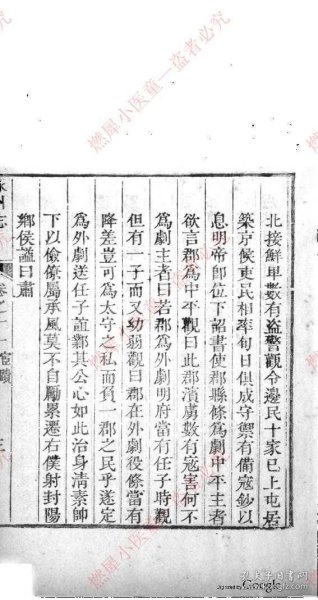 北接鮮卑數有盜警觀令邊民十家已上屯居
築京候吏民相率旬日俱成守禦有備寇鈔以
息明帝即位下詔書使郡縣條為劇中平主者
欲言郡為中平觀曰此郡濱虜數有寇害何不
為劇主者曰若郡為外劇明府當有任子時觀
但有一子而又幼弱觀曰郡在外劇役條當有
降差豈可為太守之私而負一郡之民乎遂定
為外劇送任子誼鄴其公心如此治身清素帥
下以儉僚屬承風莫不自勵累遷右僕射封陽
鄉侯諡曰肅
志 卷之二 宦蹟 三
燃犀小医童一盗者必究
燃犀小医童一盗者必究
燃犀小医童一盗者必究
Digitized by Google